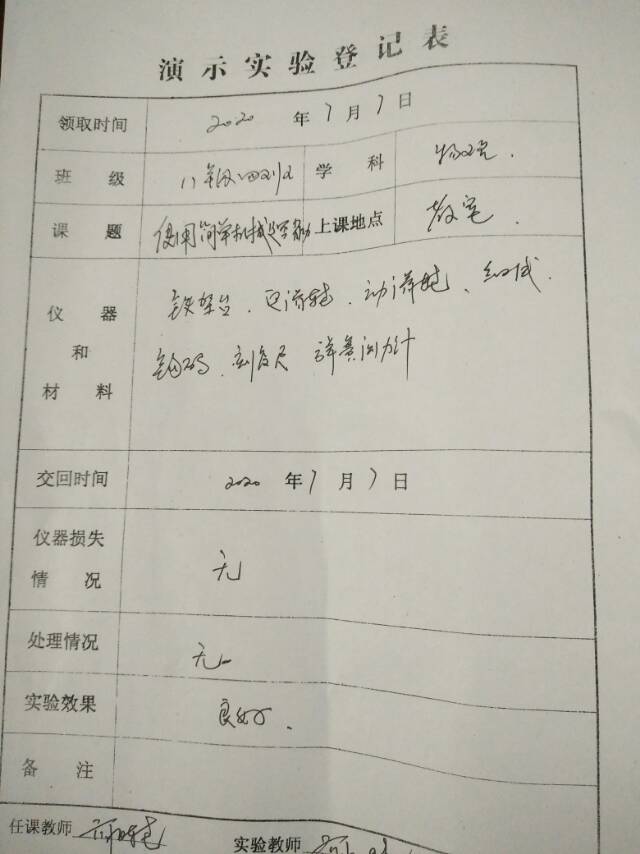 演示实验登记表
领取时间 2020 年 7 月 7 日
班级 八年级 学科 物理.
课题 使用简单机械 上课地点 教室.
仪器和材料 铁架台、定滑轮、动滑轮、细线.
钩码、刻度尺 弹簧测力计
交回时间 2020 年 7 月 7 日
仪器损失情况 无
处理情况 无
实验效果 良好.
备注
任课教师 实验教师